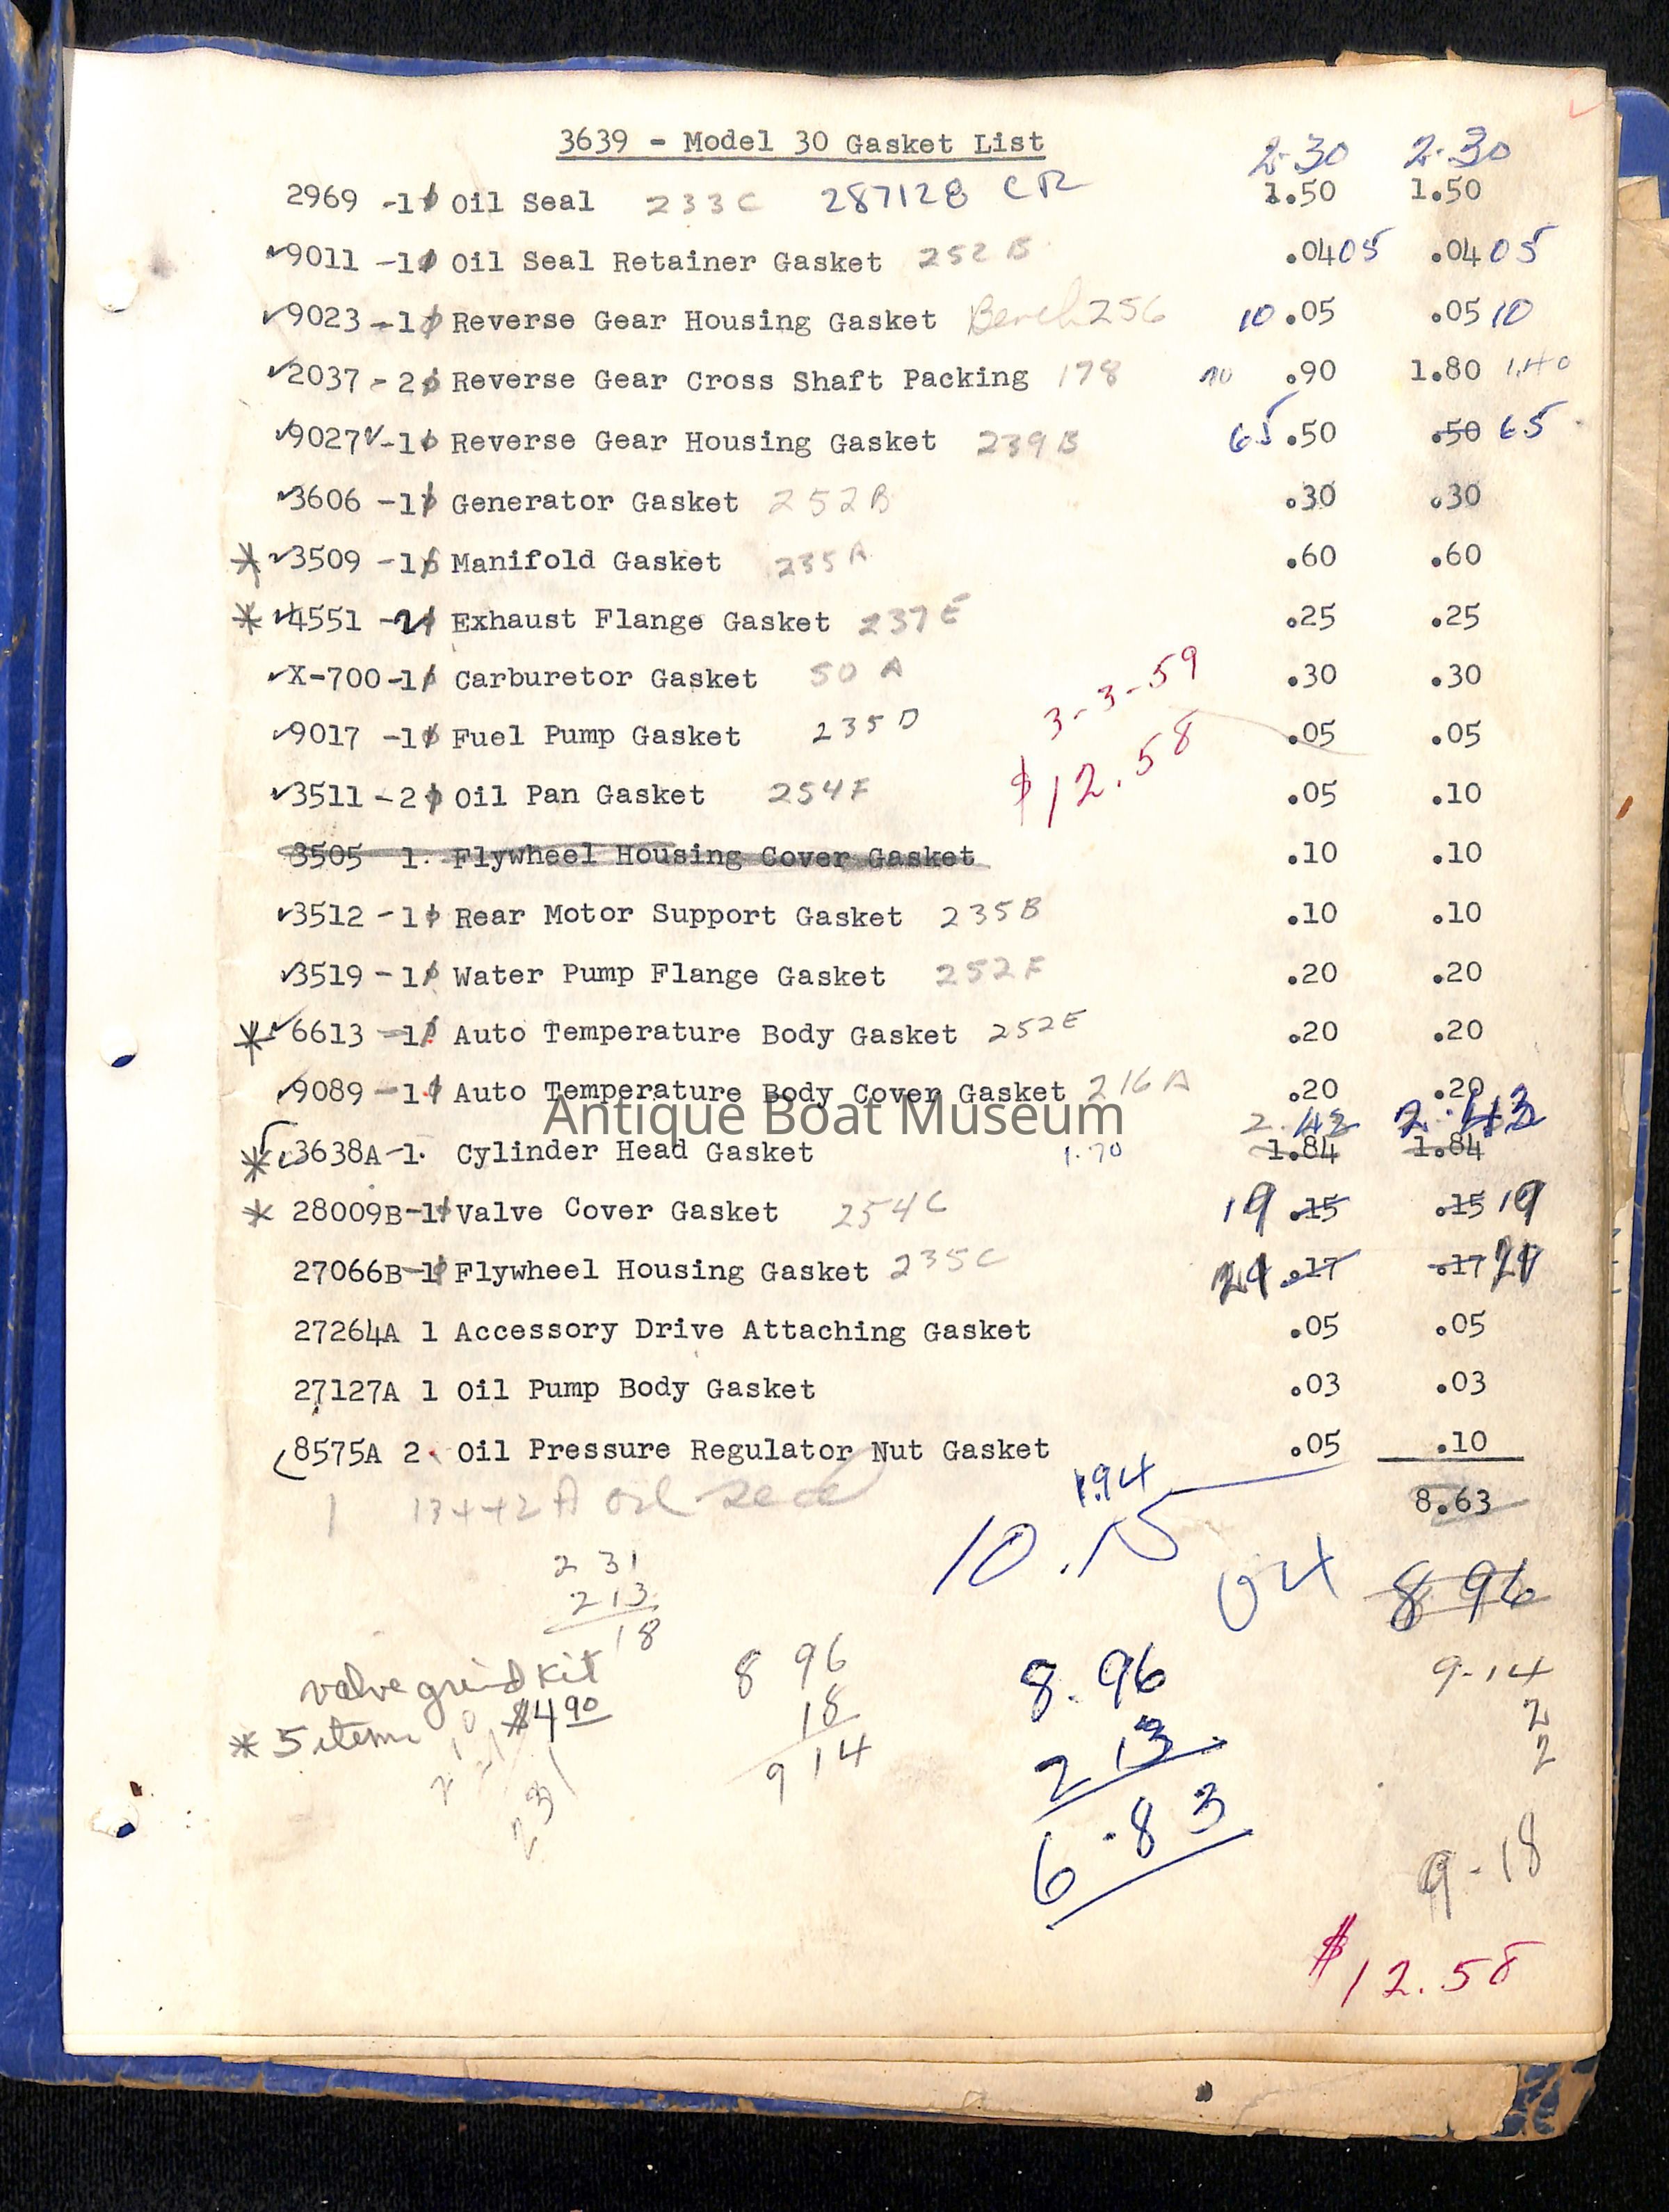 3639 - Model 30 Gasket List
2-30 2-30
2969 -1 Oil Seal 233C 287128 CR 1.50 1.50
9011 -1 Oil Seal Retainer Gasket 252 B .04 05 .04 05
9023 -1 Reverse Gear Housing Gasket Bench 256 10 .05 .05 10
2037 - 2 Reverse Gear Cross Shaft Packing 178 70 .90 1.80 1.40
9027 -1 Reverse Gear Housing Gasket 239 B 65 .50 .50 65
3606 -1 Generator Gasket 252B .30 .30
* 3509 -1 Manifold Gasket 235A .60 .60
* 4551 - Exhaust Flange Gasket 237E .25 .25
X-700-1 Carburetor Gasket 50 A .30 .30
3-3-59
9017 -1 Fuel Pump Gasket 235D .05 .05
$12.58
3511 - 2 Oil Pan Gasket 254F .05 .10
3505 1 Flywheel Housing Cover Gasket .10 .10
3512 - 1 Rear Motor Support Gasket 235B .10 .10
3519 - 1 Water Pump Flange Gasket 252F .20 .20
* 6613 - 1 Auto Temperature Body Gasket 252E .20 .20
9089 - 1 Auto Temperature Body Cover Gasket 216A .20 .20
Antique Boat Museum
2.43 2.43
* 3638A-1 Cylinder Head Gasket 1.70 1.84 1.84
* 28009B-1 Valve Cover Gasket 254C 19 .15 .15 19
27066B-1 Flywheel Housing Gasket 235C .17 .17
27264A 1 Accessory Drive Attaching Gasket .05 .05
27127A 1 Oil Pump Body Gasket .03 .03
8575A 2 Oil Pressure Regulator Nut Gasket .05 .10
1 13442A oil seal 1.94 8.63
10.15
8 96
2 31
2 13
18
valve grind kit
$4.90
* 5 items
231
8 96
18
9 14
8.96
2 13
6.83
9-14
2
2
9-18
$12.58